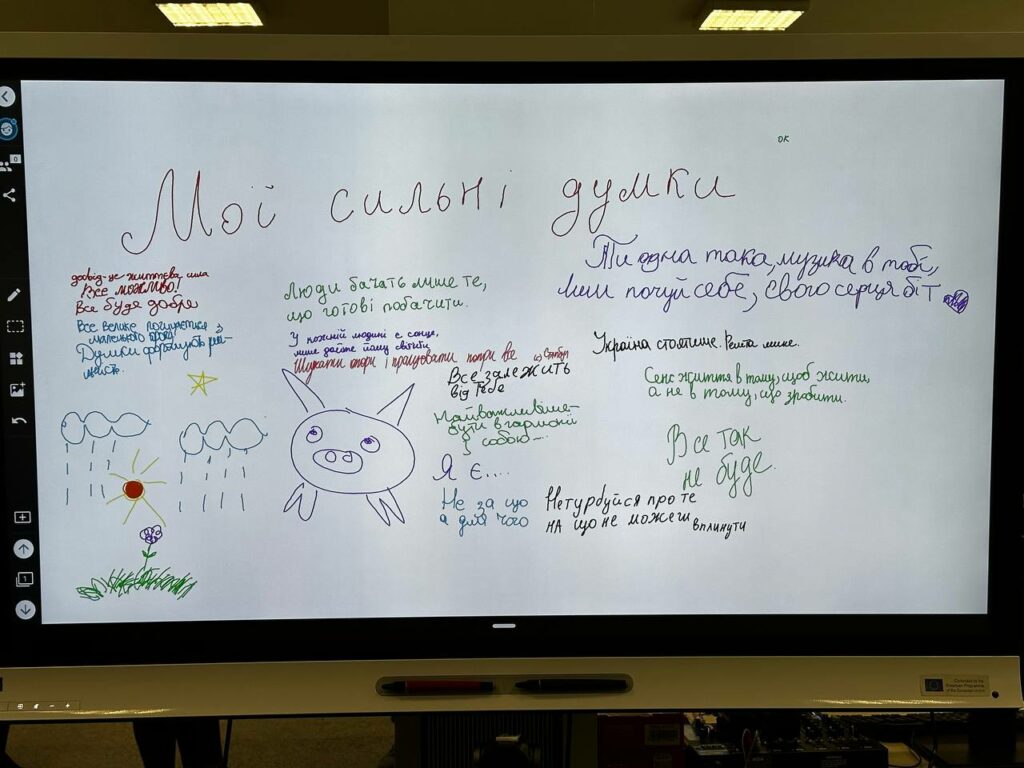 ок
Мої сильні думки
досвід-це життєва сила
Все можливо!
Все буде добре
Все велике починається з
маленького кроку
Думки формують реа-
льність.
Люди бачать лише те,
що готові побачити.
У кожній людині є сонце,
лише дайте йому світити
Шукати опори і працювати попри все
Все залежить
від тебе
Найважливіше-
бути в гармонії
з собою....
Я є....
Не за що
а для чого
Ти одна така, музика в тобі,
лиш почуй себе, свого серця біт
Україна стоятиме. Решта мине.
Сенс життя в тому, щоб жити,
а не в тому, що зробити.
Все так
не буде.
Не турбуйся про те
на що не можеш вплинути
1
Co-funded by the
Erasmus+ Programme
of the European Union